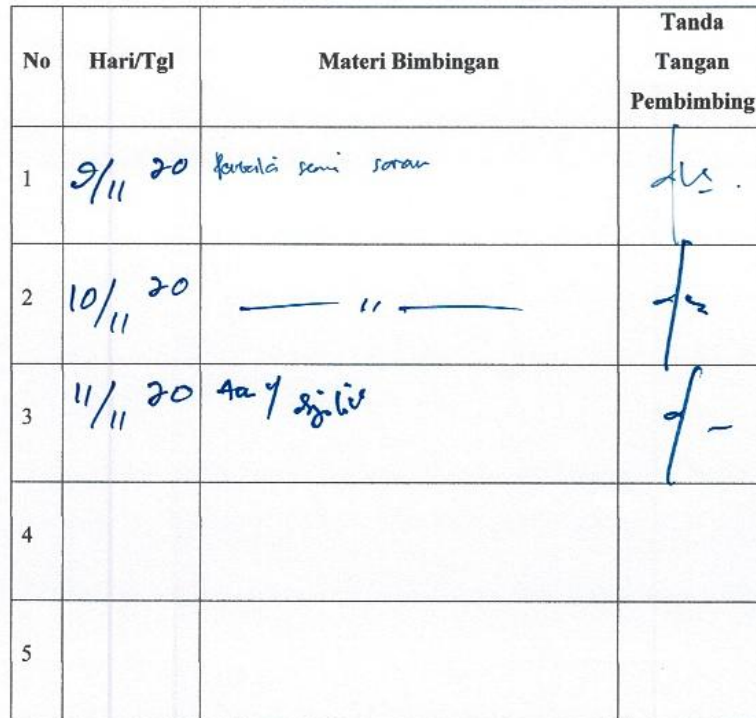 No Hari/Tgl Materi Bimbingan Tanda Tangan Pembimbing
1 9/11 20 perbaiki semi saran
2 10/11 20 ——— " ———
3 11/11 20 Acc y/
4
5